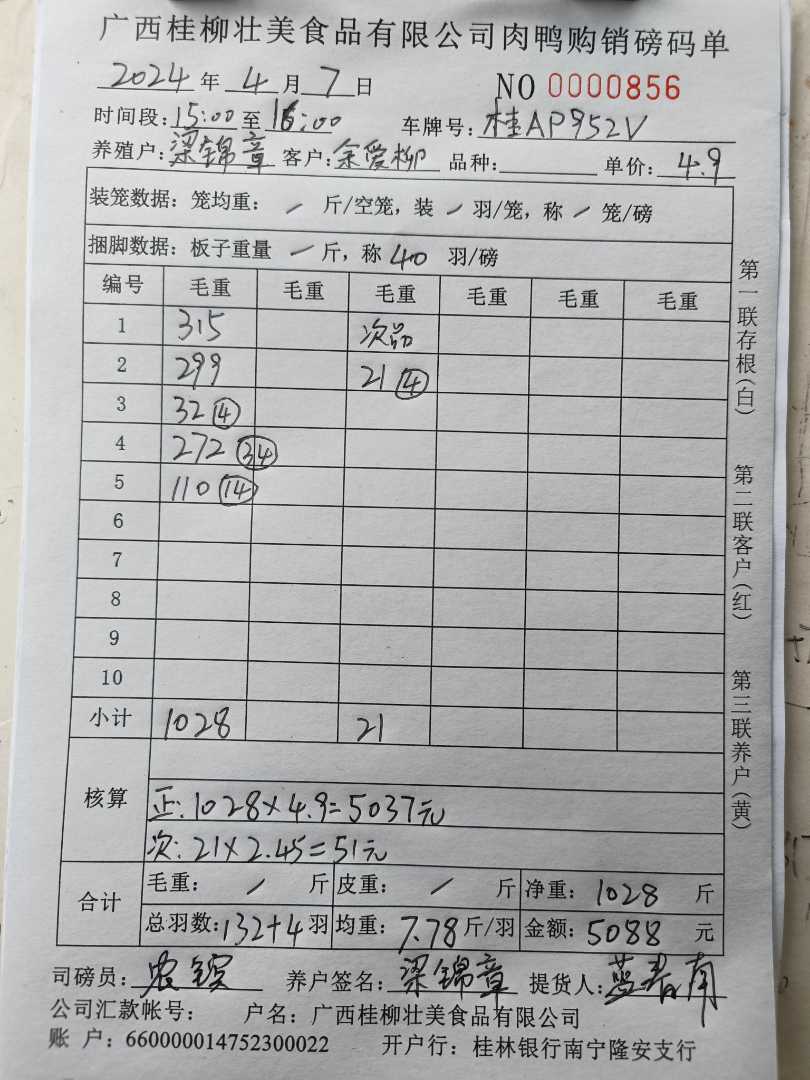 广西桂柳壮美食品有限公司肉鸭购销磅码单
2024年4月7日 NO 0000856
时间段:15:00至16:00 车牌号:桂AP952V
养殖户:梁锦章 客户:余爱柳 品种: 单价:4.9
装笼数据:笼均重: / 斤/空笼,装 / 羽/笼,称 / 笼/磅
捆脚数据:板子重量 / 斤,称 40 羽/磅
编号 毛重 毛重 毛重 毛重 毛重 毛重
1 315 次品
2 299 21 ④
3 32 ④
4 272 ㉞
5 110 ⑭
6
7
8
9
10
小计 1028 21
核算
正:1028×4.9=5037元
次:21×2.45=51元
合计
毛重: / 斤 皮重: / 斤 净重:1028 斤
总羽数:132+4羽 均重:7.78斤/羽 金额:5088 元
司磅员: 养户签名:梁锦章 提货人:蓝春南
公司汇款帐号: 户名:广西桂柳壮美食品有限公司
账 户:660000014752300022 开户行:桂林银行南宁隆安支行
第一联存根(白)
第二联客户(红)
第三联养户(黄)